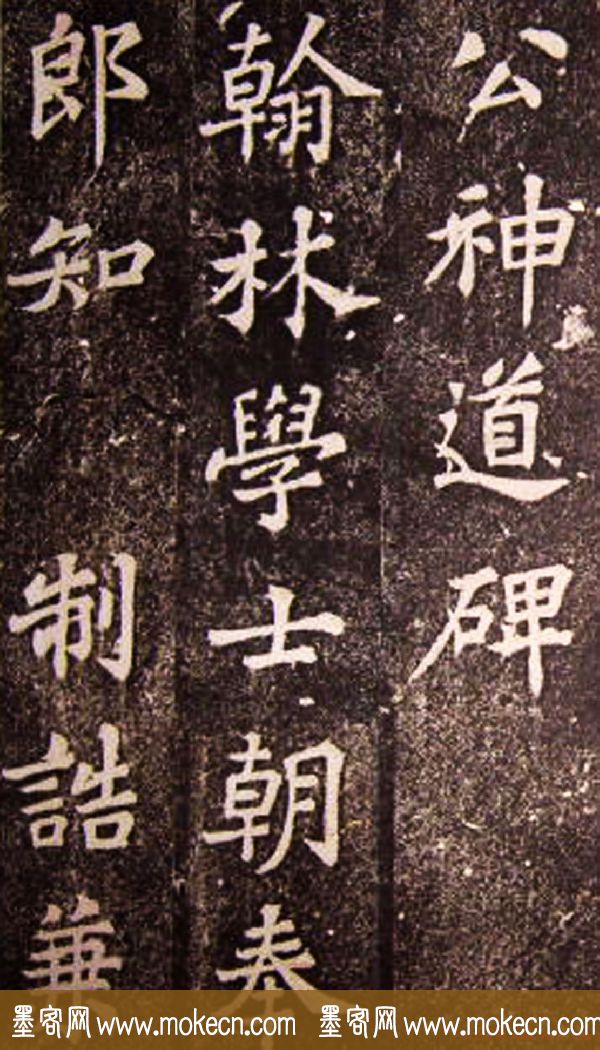 公神道碑
翰林學士朝奉
郎知制誥兼
墨客网 www.mokecn.com 墨客网 www.mokecn.com